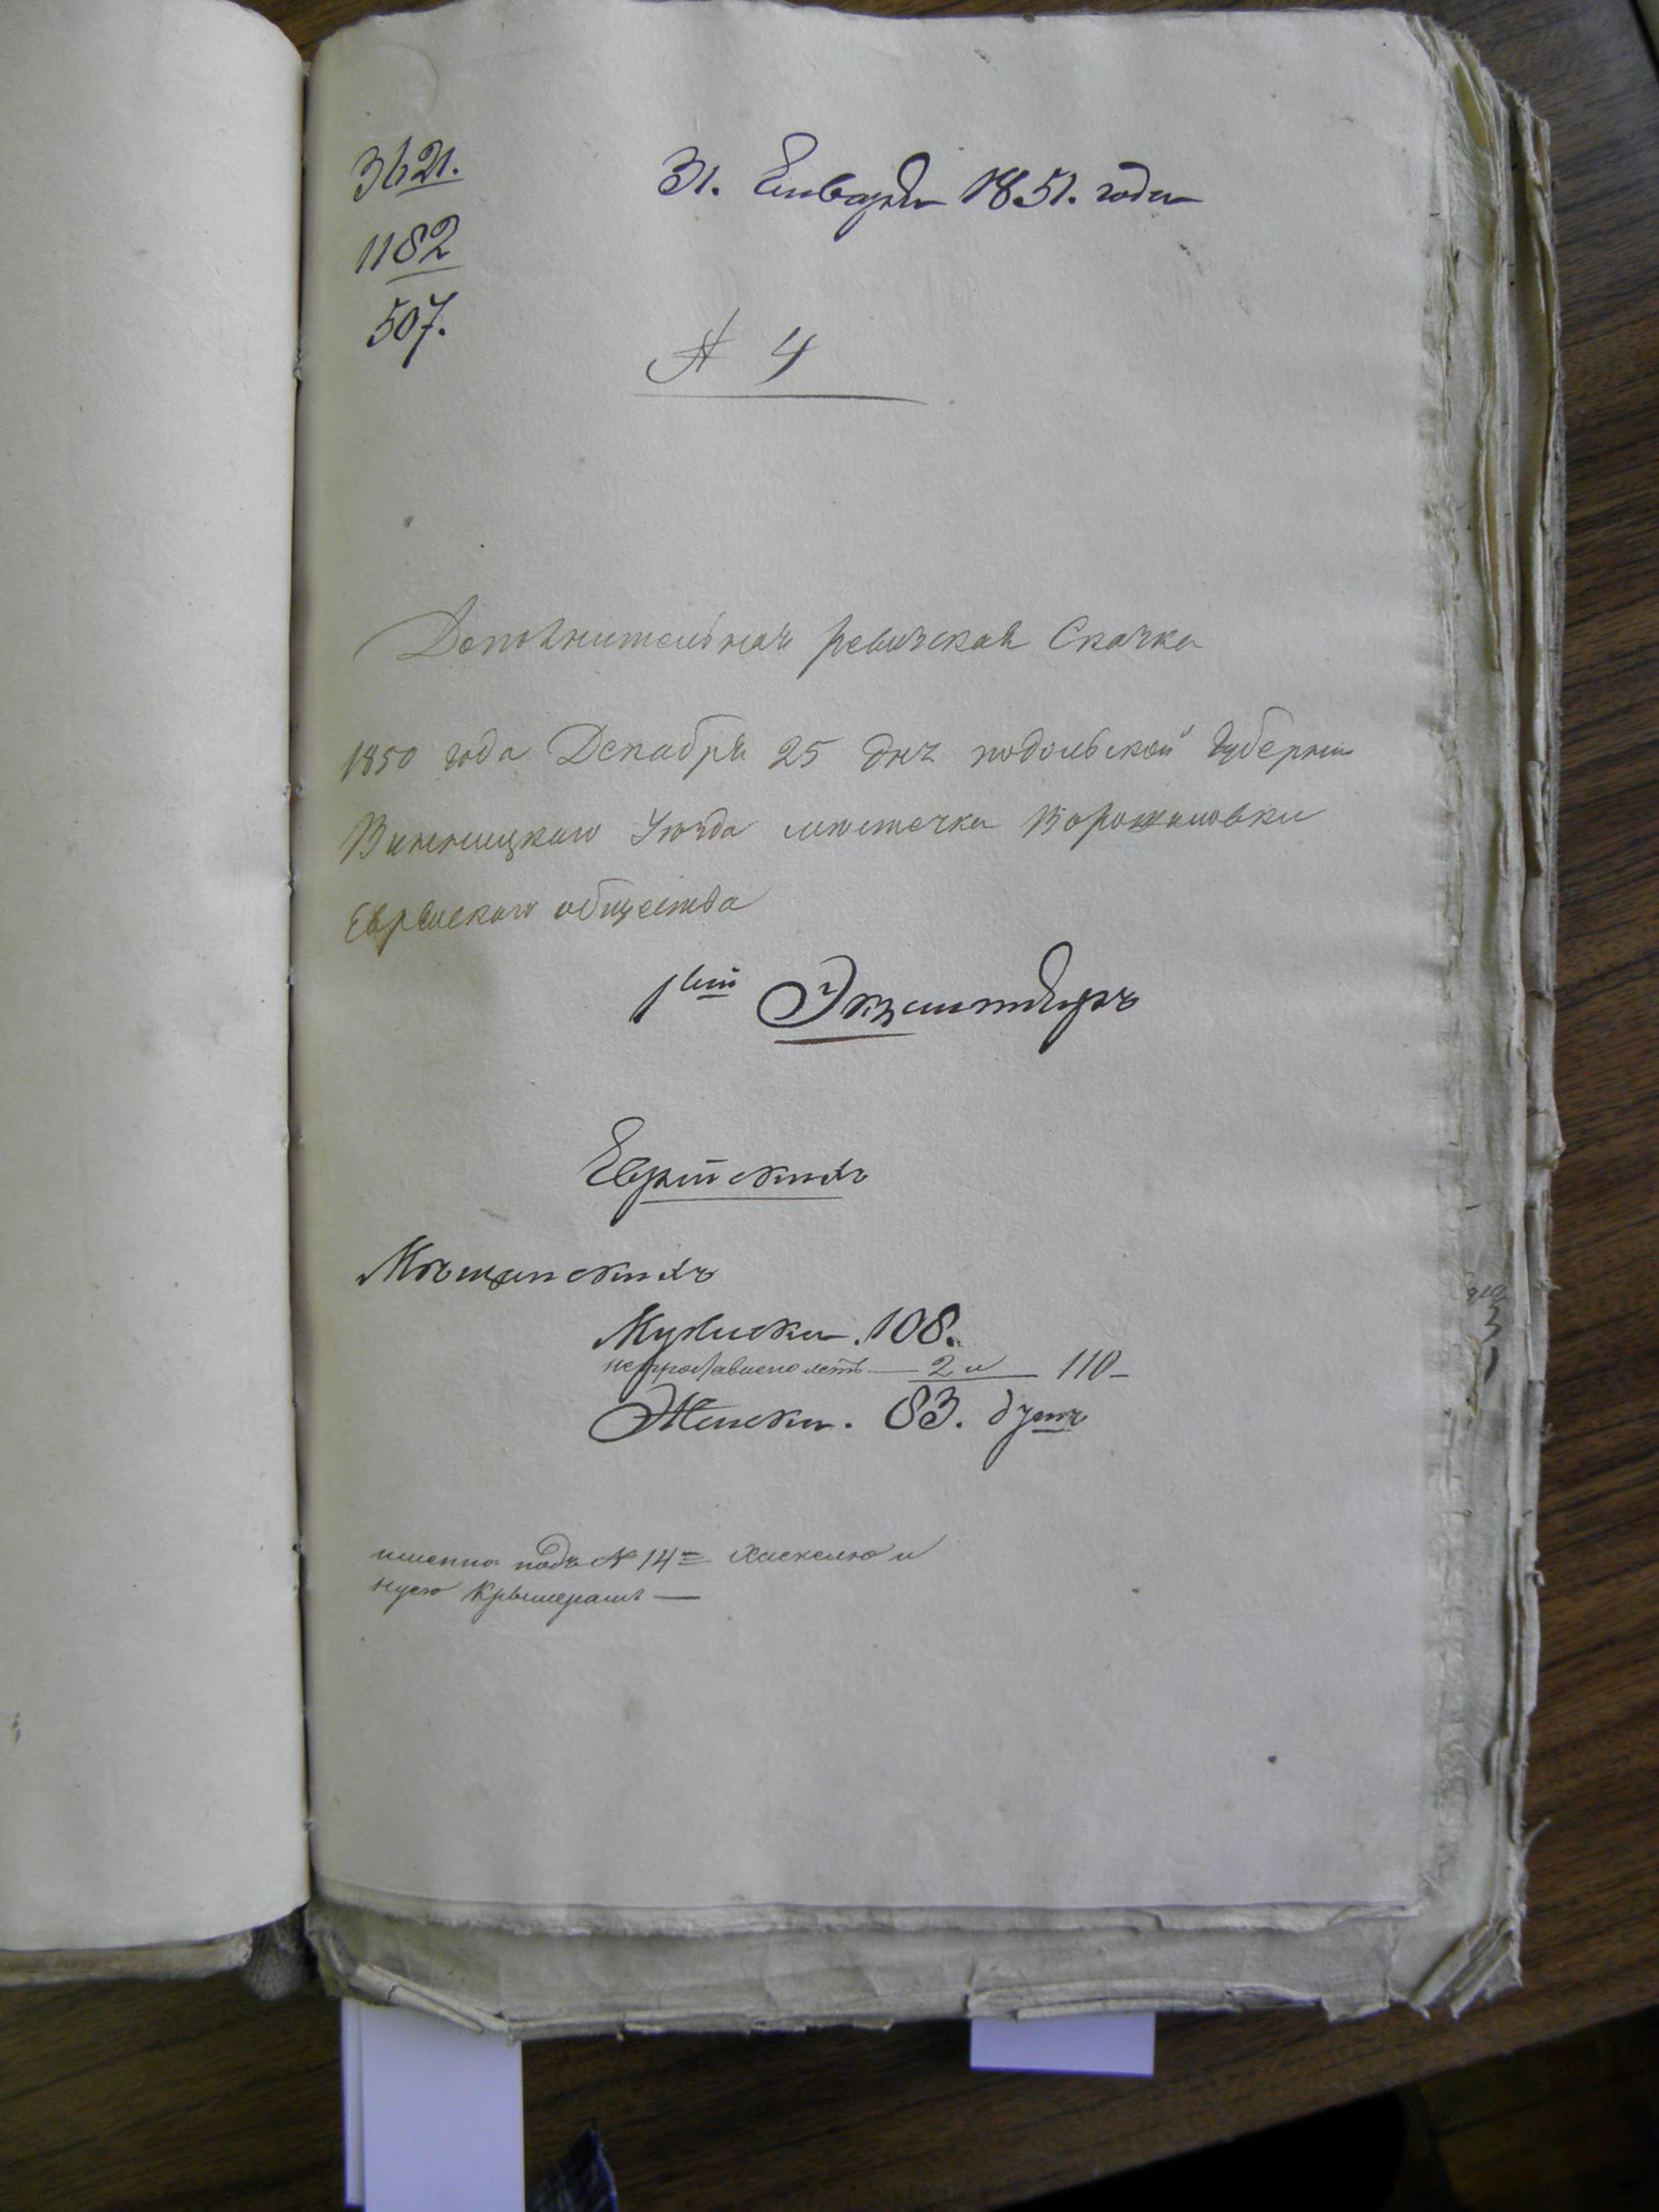 3621.
1182
507.
31. Генваря 1851. года
№ 4
Дополнительная ревизская Сказка
1850 года Декабря 25 дня подольской Губернии
Винницкаго Уезда местечка Ворошиловки
Еврейскаго общества
1вый Экземпляръ
Еврейскихъ
Мѣщанскихъ
Мужеска. 108.
2 и 110
Женска. 83. душъ
именно подъ № 14м Хаскелю и